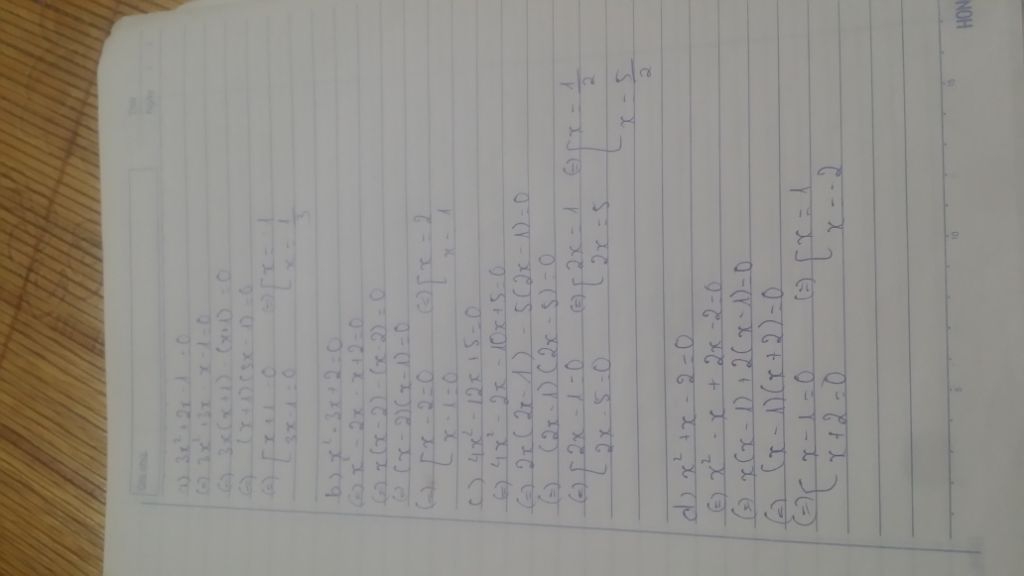 a) 3x² + 2x - 1 = 0
(=) 3x² + 3x - x - 1 = 0
(=) 3x(x+1) - (x+1) = 0
(=) (x+1)(3x-1) = 0
(=) [ x+1 = 0 (=) [ x = -1
3x-1 = 0 x = 1/3
b) x² - 3x + 2 = 0
(=) x² - 2x - x + 2 = 0
(=) x(x-2) - (x-2) = 0
(=) (x-2)(x-1) = 0
(=) [ x-2 = 0 (=) [ x = 2
x-1 = 0 x = 1
c) 4x² - 12x + 5 = 0
(=) 4x² - 2x - 10x + 5 = 0
(=) 2x(2x-1) - 5(2x-1) = 0
(=) (2x-1)(2x-5) = 0
(=) [ 2x-1 = 0 (=) [ 2x = 1 (=) [ x = 1/2
2x-5 = 0 2x = 5 x = 5/2
d) x² + x - 2 = 0
(=) x² - x + 2x - 2 = 0
(=) x(x-1) + 2(x-1) = 0
(=) (x-1)(x+2) = 0
(=) { x-1 = 0 (=) [ x = 1
x+2 = 0 x = -2
HON